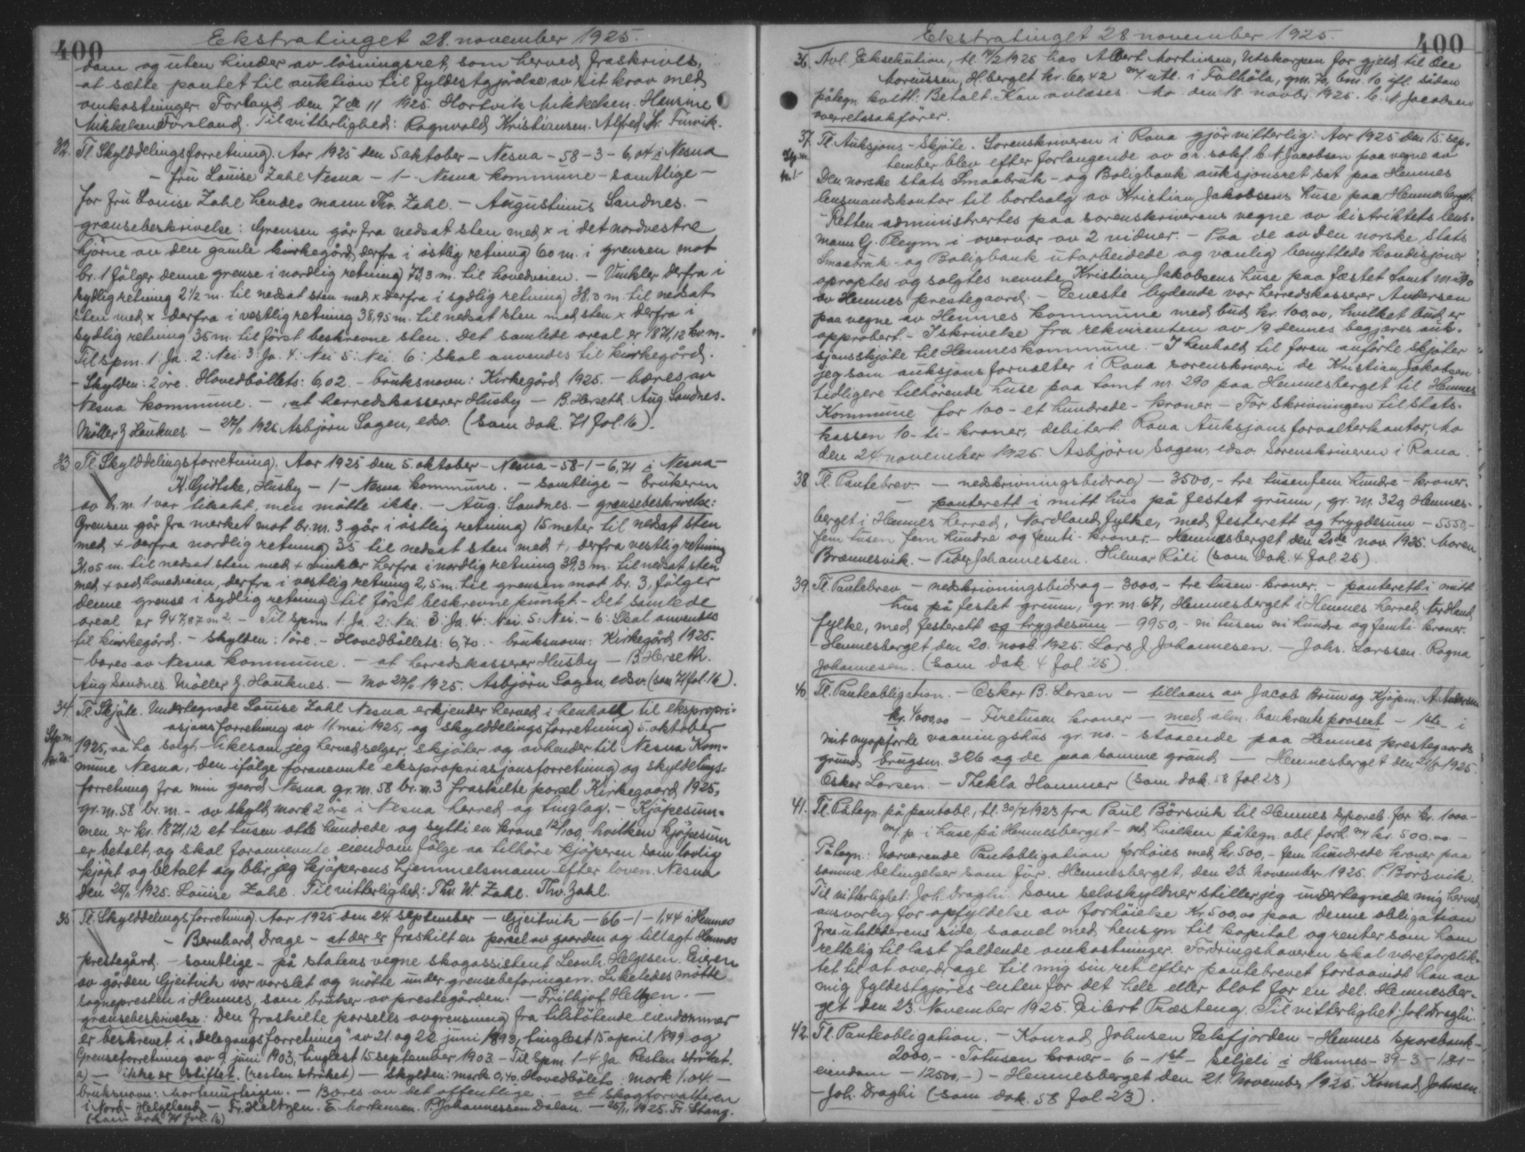 400
Ekstratinget 28. november 1925.
dom og uten hinder av løsningsret, som herved fraskrives,
at sætte pantet til auktion til fyldestgjørelse av sit krav med
omkostninger. Forland den 7 de 11 1925. Hartvik Mikkelsen. Henrine
Mikkelsen Forsland. Til vitterlighed: Ragnvald Kristiansen. Alfred
32. Tl. Skylddelingsforretning. Aar 1925 den 5 oktober - Nesna - 58 - 3 - 6,04 i Nesna
- fru Louise Zahl Nesna - 1 - Nesna kommune - samtlige -
for fru Louise Zahl hendes mann Thv. Zahl. - Augustinus Sandnes. -
grænsebeskrivelse: Grensen går fra nedsat sten med x i det nordvestre
hjørne av den gamle kirkegård, derfra i østlig retning 60 m. i grensen mot
br. 1 følger denne grense i nordlig retning 73,3 m. til hovedveien. - Vinkler derfra i
sydlig retning 2½ m. til nedsat sten med x derfra i sydlig retning 38,0 m. til nedsat
sten med x derfra i vestlig retning 38,95 m. til nedsat sten med sten x derfra i
sydlig retning 35 m. til først beskrevne sten. Det samlede areal er 1871,12 kv.m.
Til spm. 1: Ja. 2: Nei 3: Ja. 4: Nei 5: Nei. 6: skal anvendes til kirkegård.
- Skylden: 2 øre. Hovedbøllets: 6,02. - bruksnavn: Kirkegård 1925. - bæres av
Nesna kommune. - at herredskasserer Husby - B. Herseth. Aug. Sandnes.
Møller J. Hauknes - 1925 Asbjørn Sagen, edsv. (som dok. 71 fol. 16).
33 Tl. Skylddelingsforretning. Aar 1925 den 5. oktober - Nesna - 58 - 1 - 6,71 i Nesna -
Husby - 1 - Nesna kommune. - samtlige - brukeren
av br. n. 1 var tilsakt, men møtte ikke. - Aug. Sandnes. - grensebeskrivelse:
Grensen går fra merket mot br. n. 3 går i østlig retning 15 meter til nedsat sten
med + derfra nordlig retning 35 til nedsat sten med +, derfra vestlig retning
31,05 m. til nedsat sten med + vinkler herfra i nordlig retning 39,3 m. til nedsat sten
med + ved hovedveien, derfra i vestlig retning 2,5 m. til grensen mot br. 3, følger
denne grense i sydlig retning til først beskrevne punkt - Det samlede
areal er 947,87 m² - Til spm 1: Ja 2: Nei 3: Ja 4: Nei 5: Nei - 6: Skal anvendes
til kirkegård. - skylden: 1 øre. - Hovedbøllets: 6,70. - bruksnavn: Kirkegård 1925.
- bæres av Nesna kommune. - at herredskasserer Husby - B. Herseth.
Aug Sandnes. Møller J. Hauknes. - Mo 1925. Asbjørn Sagen edsv. (som 71 fol. 16).
34. Tl. Skjøte. Undertegnede Louise Zahl Nesna erkjender herved i henhold til ekspropri-
asjonsforretning av 11 mai 1925, og skylddelingsforretning 5. oktober
1925, aa ha solgt, likesom jeg herved selger, skjøter og avhender til Nesna Kom-
mune Nesna, den ifølge forannevnte ekspropriasjonsforretning og skyldelings-
forretning fra min gaard Nesna gr. n. 58 br. n. 3 fraskilte parcel Kirkegaard 1925,
gr. m. 58 br. m. - av skyld mark 2 øre i Nesna herred og tinglag. - Kjøpesum-
men er kr. 1871,12 et tusen otte hundrede og sytti en krone 12/100, hvilken kjøpesum
er betalt, og skal forannevnte eiendom følge aa tilhøre kjøperen som lovlig
kjøpt og betalt og blir jeg kjøperens hjemmelsmann efter loven. Nesna
den 1925. Louise Zahl. Til vitterlighed: Thv. W. Zahl. Thv. Zahl.
35 Tl. Skylddelingsforretning. Aar 1925 den 24. september - Gjeitvik - 66 - 1 - 1,44 i Hemnes
- Bernhard Drage - at der er fraskilt en parsel av gaarden og tillagt Hemnes
prestegård. - samtlige - på statens vegne skogassistent Leonh. Helgesen. Eieren
av gården Gjeitvik var varslet og møtte under grensebefaringen. Likeledes møtte
sognepresten i Hemnes, som bruker av prestegården. - Fridtjof Heltzen. -
grensebeskrivelse: Den fraskilte parsells avgrensning fra tilstøtende eiendommer
er beskrevet i "Delegangsforretning" av 21. og 22. juni 1893, tinglest 15 april 1899 og
Grenseforretning av 9. juni 1903, tinglest 15 september 1903 - Til Spm. 1-4 Ja. Resten strøket.
a) - ikke er stiftet. (resten strøket) - skylden: mark 0,40. Hovedbølets: mark 1.04. -
bruksnavn: - Bæres av det offentlige - at skogforvalteren
i Nord-Helgeland - Fr. Heltzen. E. Mortensen. P. Johannessen Dalen - 1925. Fr. Stang.
(som dok. 71 fol. 16)
Ekstratinget 28 november 1925.
400
36. Avl. Eksekution, tl. 1925 hos Albert Martinsen, Utskarpen for gjeld til
Hberget kr. 60,42
påtegn. kvitt: Betalt. Kan avlæses Mo. den 18 novbr. 1925. C. A. Jacobsen
overretssakfører.
37. Tl. Auksjons-Skjøte. Sorenskriveren i Rana gjør vitterlig: Aar 1925 den 15. sep-
tember blev efter forlangende av o.r. sakf. C. A. Jacobsen paa vegne av
Den norske stats Smaabruk- og Boligbank auksjonsret sat paa Hemnes
lensmandskontor til bortsalg av Kristian Jakobsens huse paa Hemnesberget.
- Retten administrertes paa sorenskriverens vegne av distriktets lens-
mann G. Pleym i overvær av 2 vidner. - Paa de av den norske stats
Smaabruk- og Boligbank utarbeidede og vanlig benyttede kondisjoner
opropes og solgtes nevnte Kristian Jakobsens huse paa fæstet tomt nr. 290
av Hemnes prestegaard. - Eneste bydende var herredskasserer Andersen
paa vegne av Hemnes kommune med bud kr. 100,00, hvilket bud er
approbert. - I skrivelse fra rekvirenten av 19 dennes begjæres auk-
sjonsskjøte til Hemnes kommune. - I henhold til foran anførte skjøter
jeg som auksjonsforvalter i Rana sorenskriveri de Kristian Jakobsen
tidligere tilhørende huse paa tomt nr. 290 paa Hemnesberget til Hemnes
Kommune for 100 - et hundrede - kroner. - For skrivningen til stats-
kassen 10 - ti - kroner, debitert Rana Auksjonsforvalterkontor, Mo
den 24. november 1925. Asbjørn Sagen, edsv. Sorenskriveren i Rana.
38 Tl. Pantebrev. - nedskrivningsbidrag - 3500,- tre tusen fem hundre - kroner.
- panterett i mitt hus på festet grunn, gr. m. 329 Hemnes-
berget i Hemnes herred, Nordland fylke, med festerett og trygdesum - 5550,-
fem tusen fem hundre og femti kroner. - Hemnesberget den 20de nov 1925. Maren
Brennesvik. - Peder Johannessen. Hilmar (som dok. 4 fol. 25).
39. Tl. Pantebrev - nedskrivningsbidrag - 3000,- tre tusen kroner. - panterett i mitt
hus på festet grunn, gr. m. 67, Hemnesberget i Hemnes herred, Nordland
fylke, med festerett og trygdesum - 9950,- ni tusen ni hundre og femti kroner.
- Hemnesberget den 20. novb. 1925. Lars J. Johannesen. - Johs. Larssen. Ragna
Johannesen. (som dok 4 fol. 25).
40 Tl. Panteobligation. - Oskar B. Larsen - tillaans av Jacob Bruun og Kjøpm.
kr. 4000,00 - Firetusen kroner - med alm. bankrente - 1ste - i
mit nyopførte vaaningshus gr. no. - staaende paa Hemnes prestegaards
grund brugsn. 306 og de paa samme grund - Hemnesberget den 1925.
Oskar Larsen. - Thekla Hammer (som dok. 58 fol 23)
41. Tl. Påtegn. på pantobl., tl. 1923 fra Paul Børsvik til Hemnes spareb. for kr. 1000 -
m. p. i huse på Hemnesberget - ved hvilken påtegn. obl. forh. m/ kr. 500.00 -
Påtegn: Nærværende Pantobligation forhøies med kr. 500,- fem hundrede kroner paa
samme betingelser som før. Hemnesberget, den 23. november 1925. P. Børsvik.
Til vitterlighet: Joh. Draghi. Som selvskyldner stiller jeg undertegnede mig herved
ansvarlig for opfyldelse av forhøielse kr. 500,00 paa denne obligation
fra utstederens side, saavel med hensyn til kapital og renter som ham
rettelig til last faldende omkostninger. Fordringshaveren skal være forplik-
tet til at overdrage til mig sin ret efter pantebrevet forsaavidt han av
mig fyldestgjøres enten for det hele eller blot for en del. Hemnesber-
get den 23. November 1925. Eilert Præsteng. Til vitterlighet Joh. Draghi.
42. Tl. Panteobligation. - Konrad Johnsen - Hemnes sparebank -
2000,- - Totusen kroner - 6 - 1ste - i Hemnes - 39 - 3 -
eiendom - 12500,-) - Hemnesberget den 21. November 1925. Konrad Johnsen
- Joh. Draghi (som dok. 58 fol. 23).